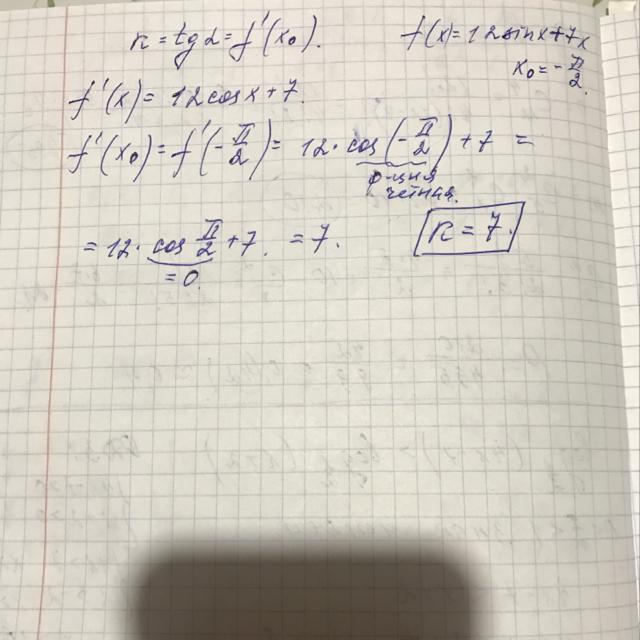 k = tg α = f'(x₀).
f(x) = 12sinx+7x
x₀ = -π/2.
f'(x) = 12cosx+7.
f'(x₀) = f'(-π/2) = 12·cos(-π/2)+7 =
ф-ция
четная.
= 12·cos π/2 +7. = 7.
= 0.
k = 7.